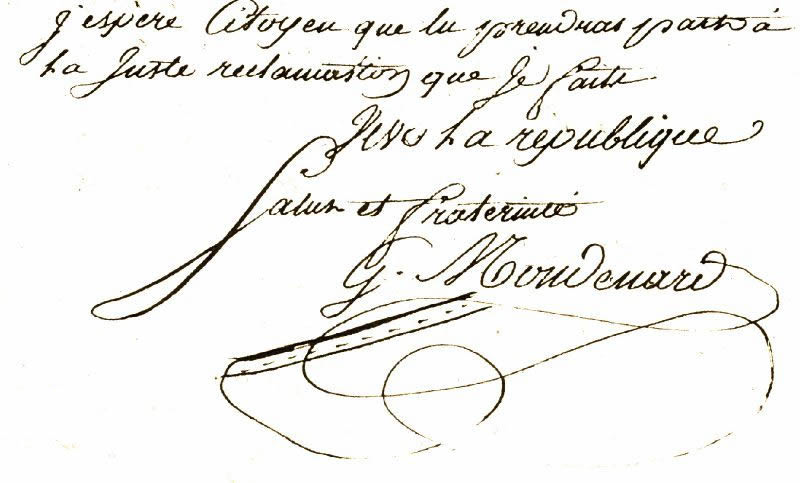 j'espère Citoyen que tu prendras part à
la Juste reclamation que Je faits
Vive la république
Salut et fraternité
G. Mondenard